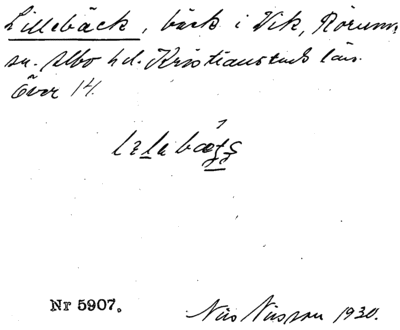 Lillebäck, bäck i Vik, Rörums
sn. Albo hd. Kristianstads län.
Över 14.
Nr 5907.
Nils Nilsson 1930.